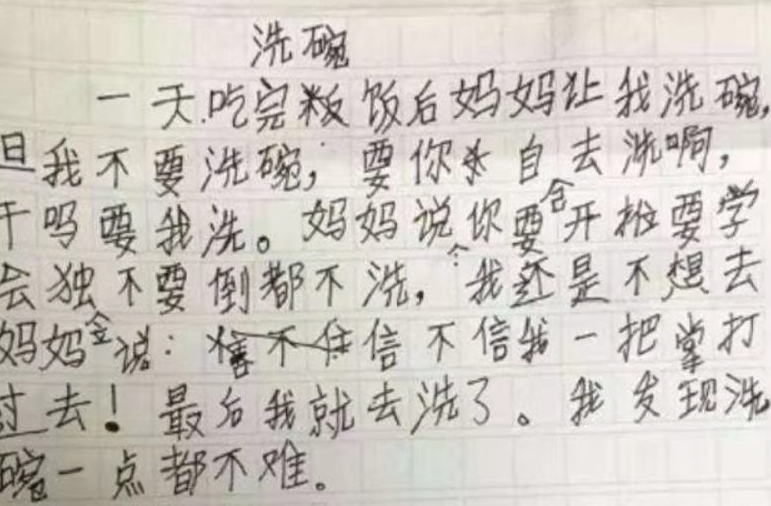 洗碗
一天.吃完粄饭后妈妈让我洗碗,
旦我不要洗碗, 要你 自去洗啊,
干吗要我洗。妈妈说你要合开 要学
会独不要倒都不洗, 我还是不想去
妈妈会说: 信不信我一把掌打
过去! 最后我就去洗了。我发现洗
碗一点都不难。